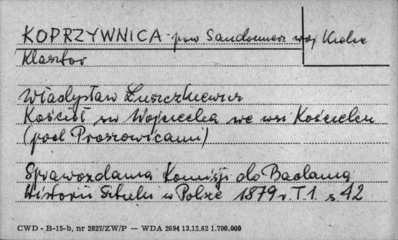 KOPRZYWNICA pow Sandomierz woj Kielce
Klasztor
Władysław Łuszczkiewicz
Kościół św Wojciecha we wsi Kościelcu
(pod Proszowicami)
Sprawozdania Komisji do Badania
Historii Sztuki w Polsce 1879 r. T. 1. s 42
CWD - B-15-b, nr 2827/ZW/P — WDA 2694 13.12.62 1.700.000